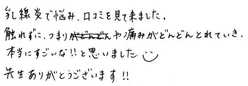 乳線炎で悩み、口コミを見て来ました。
触れずに、つまりや痛みがどんどんとれていき、
本当にすごいな!!と思いました
先生ありがとうございます!!